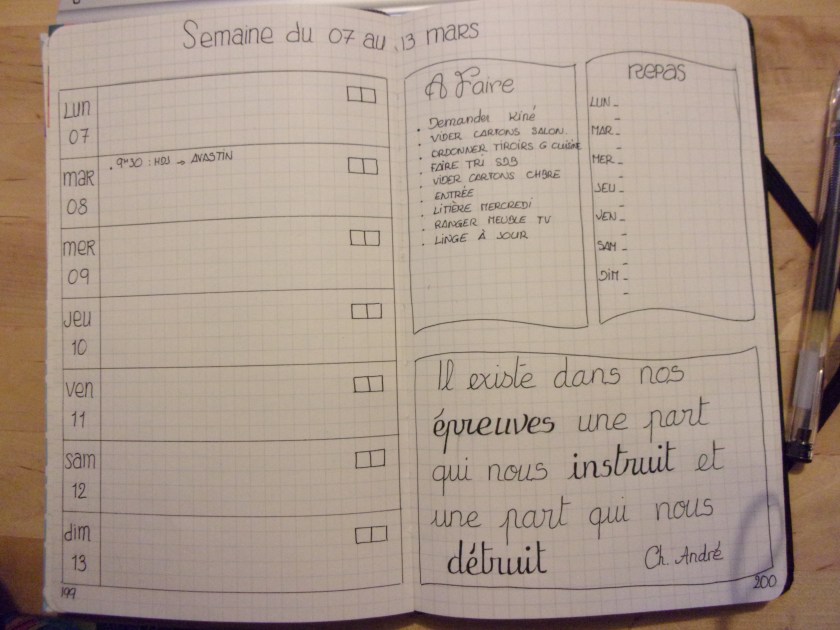 Semaine du 07 au 13 mars
Lun
07
mar
08
. 9H30 : HDJ → AVASTIN
mer
09
jeu
10
ven
11
sam
12
dim
13
199
A Faire
. Demander Kiné
. VIDER CARTONS SALON.
. ORDONNER TIROIRS G CUISINE
. FAIRE TRI SDB
. VIDER CARTONS CHBRE
. ENTRÉE
. LITIÈRE MERCREDI
. RANGER MEUBLE TV
. LINGE À JOUR
REPAS
LUN -
-
MAR -
-
MER -
-
JEU -
-
VEN -
-
SAM -
-
DIM -
-
Il existe dans nos
épreuves une part
qui nous instruit et
une part qui nous
détruit
Ch. André
200